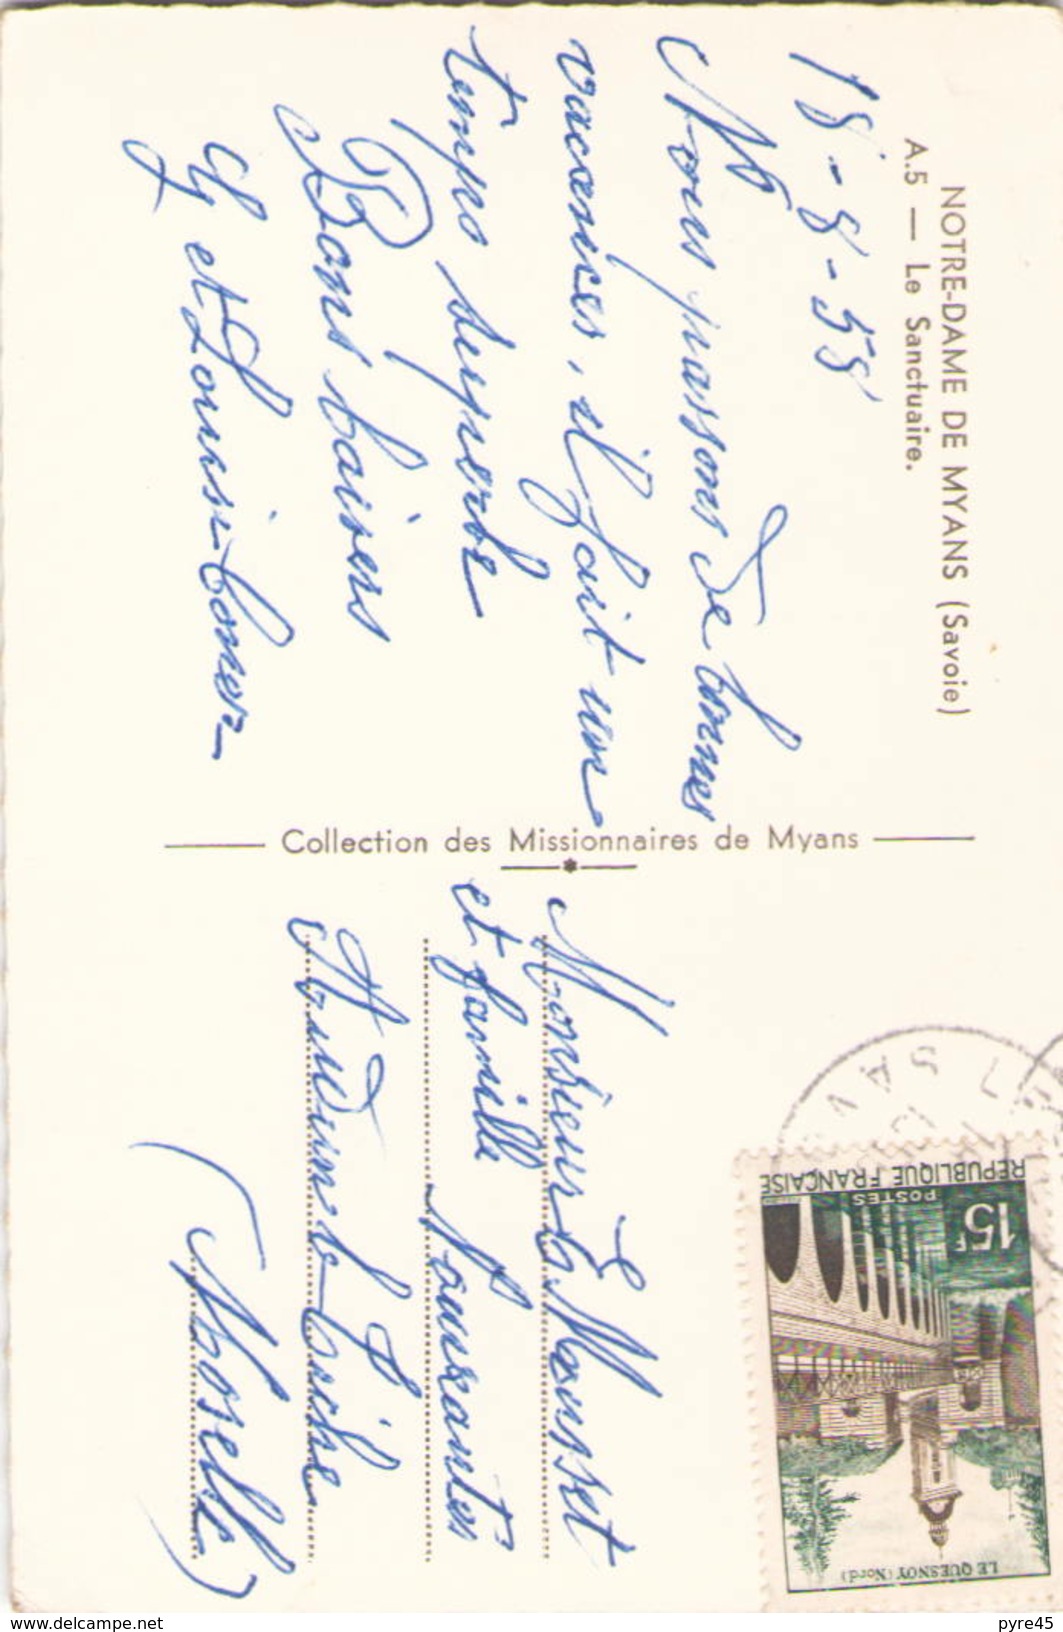 NOTRE-DAME DE MYANS (Savoie)
A.5 — Le Sanctuaire.
18-8-58
Nous passons de bonnes
vacances, il fait un
temps superbe
Bons baisers
et Louis
Collection des Missionnaires de Myans
Monsieur E. Mousset
et famille
Audun-le-Tiche
(Moselle)
SAV
RÉPUBLIQUE FRANÇAISE
POSTES
15F
LE QUESNOY (Nord)
www.delcampe.net
pyre45